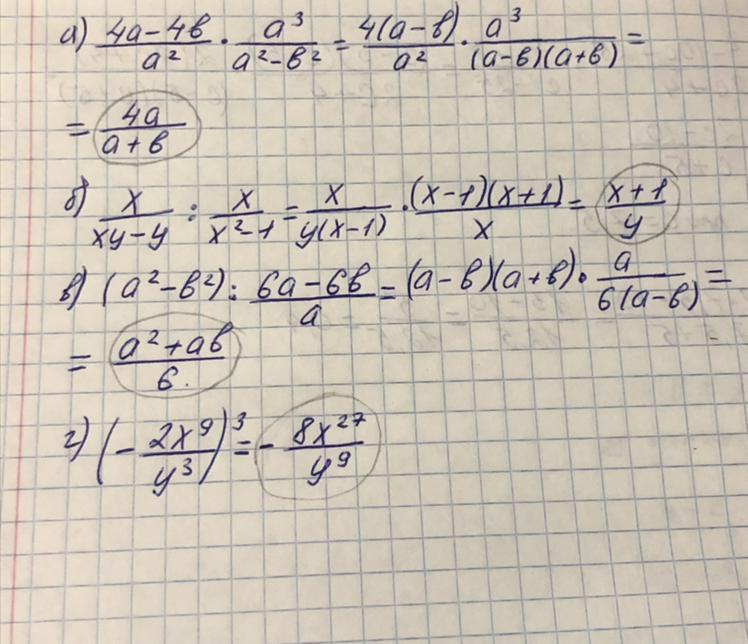 а) (4a-4b)/a² · a³/(a²-b²) = 4(a-b)/a² · a³/((a-b)(a+b)) =
= 4a/(a+b)
б) x/(xy-y) : x/(x²-1) = x/(y(x-1)) · (x-1)(x+1)/x = (x+1)/y
в) (a²-b²) : (6a-6b)/a = (a-b)(a+b) · a/(6(a-b)) =
= (a²+ab)/6.
г) (-2x⁹/y³)³ = -8x²⁷/y⁹